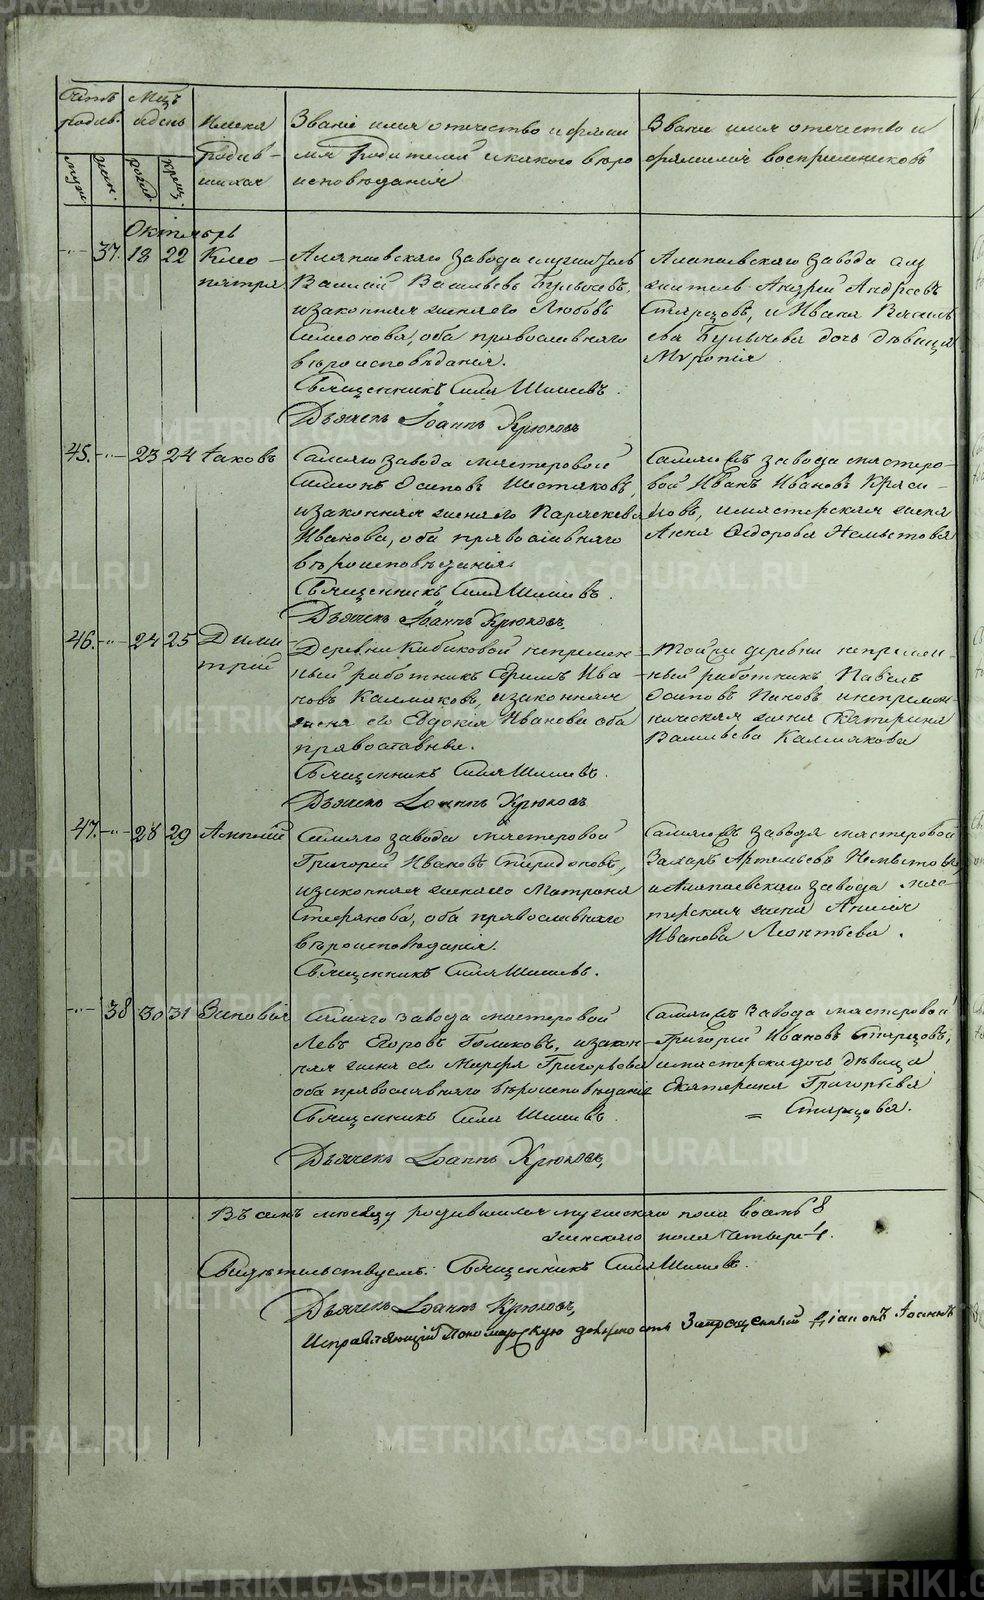 METRIKI.GASO-URAL.RU
Счетъ родив.
Мцъ и день
муж. жен. рожд. крещ.
Имена родив-
шихся
Званіе имя отчество и фами
лія родителей и какого вѣро
исповѣданія
Званіе имя отчество и
фамилія воспріемниковъ
Октябрь
37. 18 22 Клео-
патра
Алапаевскаго завода служитель
Василій Васильевъ Булычевъ,
и законная жена его Любовь
Симеонова, оба православнаго
вѣроисповѣданія.
Священникъ Сила Шишевъ.
Дьячекъ Іоаннъ Крюковъ
Алапаевскаго завода слу
житель Андрей Андреевъ
Старцовъ, и Ивана Василь
ева Булычева дочь дѣвица
Мѵропія
45. 23 24 Іаковъ
Самаго завода мастеровой
Симеонъ Осиповъ Шестаковъ,
и законная жена его Параскева
Иванова, оба православнаго
вѣроисповѣданія.
Священникъ Сила Шишевъ.
Дьячекъ Іоаннъ Крюковъ,
Самаго завода мастеро-
вой Иванъ Ивановъ
и мастерская жена
Анна Ѳедорова
46. 24 25 Дими
трій
Деревни Кабаковой непремен-
ный работникъ Ефимъ Ива
новъ Калмаковъ, и законная
жена его Евдокія Иванова оба
православные.
Священникъ Сила Шишевъ.
Дьячекъ Іоаннъ Крюковъ
Той же деревни непремен-
ный работникъ Павелъ
Осиповъ Пановъ и непремен-
ническая жена Катерина
Васильева Калмакова
47. 28 29
Самаго завода мастеровой
Григорій Ивановъ Спиридоновъ,
и законная жена его Матрона
Стефанова, оба православнаго
вѣроисповѣданія.
Священникъ Сила Шишевъ.
Самаго завода мастеровой
Захаръ Артемьевъ
и Алапаевскаго завода мас-
терская жена Анисья
Иванова Леонтьева.
38 30 31 Зиновія
Самаго завода мастеровой
Левъ Егоровъ Голиковъ, и закон-
ная жена его Марфа Григорьева
оба православнаго вѣроисповѣданія
Священникъ Сила Шишевъ
Дьячекъ Іоаннъ Крюковъ,
Самаго завода мастеровой
Григорій Ивановъ Старцовъ,
и мастерская дочь дѣвица
Екатерина Григорьева
= Старцова.
Въ семъ месяцу родившихся мужескаго пола восемь 8
женскаго пола четыре 4.
Свидѣтельствуемъ: Священникъ Сила Шишевъ.
Дьячекъ Іоаннъ Крюковъ,
Исправляющій пономарскую должность Запрещенный діаконъ